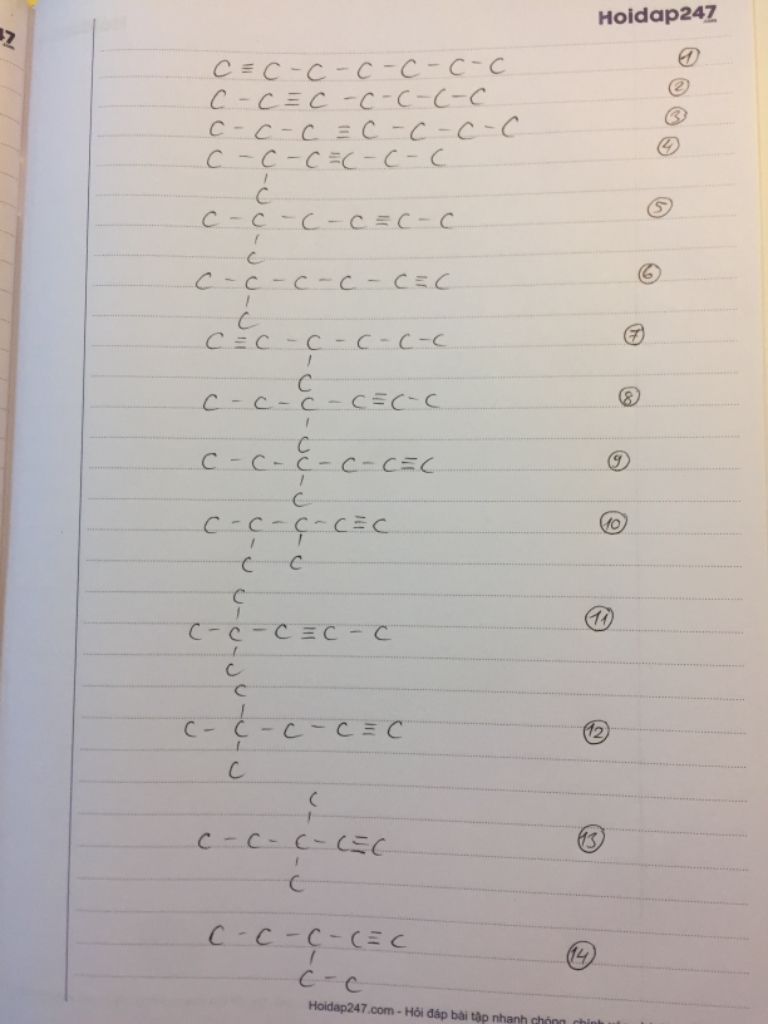 Hoidap247
.com
47
C ≡ C - C - C - C - C - C ①
C - C ≡ C - C - C - C - C ②
C - C - C ≡ C - C - C - C ③
C - C - C ≡ C - C - C ④
C
C - C - C - C ≡ C - C ⑤
C
C - C - C - C - C ≡ C ⑥
C
C ≡ C - C - C - C - C ⑦
C
C - C - C - C ≡ C - C ⑧
C
C - C - C - C - C ≡ C ⑨
C
C - C - C - C ≡ C ⑩
C C
C
C - C - C ≡ C - C ⑪
C
C
C - C - C - C ≡ C ⑫
C
C
C - C - C - C ≡ C ⑬
C
C - C - C - C ≡ C ⑭
C - C
Hoidap247.com - Hỏi đáp bài tập nhanh chóng, chính